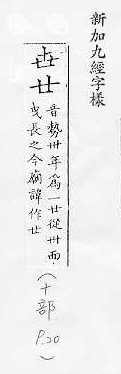 新加九經字樣
𠀍廿
音勢卅年爲一廿從卅而
曳長之今廟諱作廿
(十部
P.20)